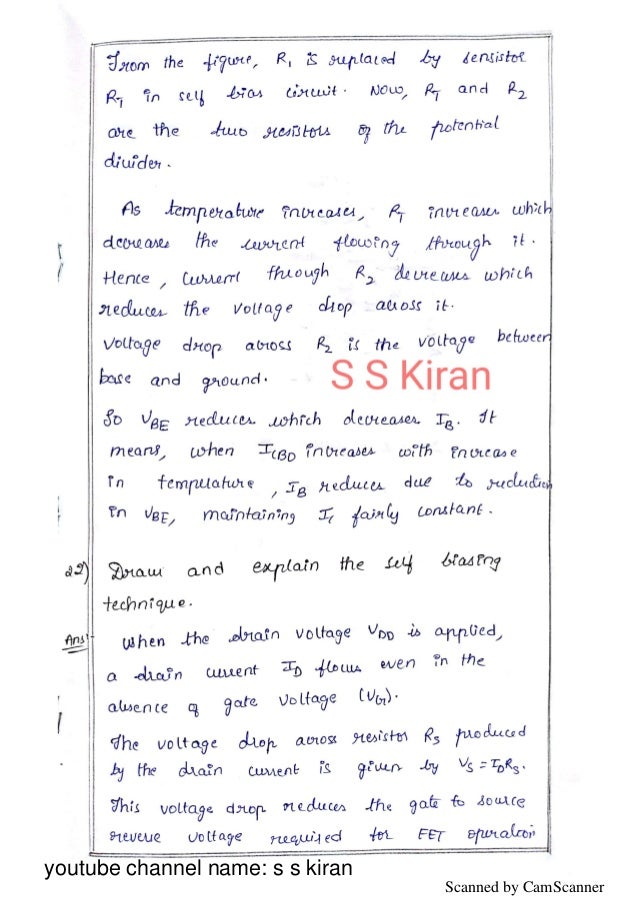 From the figure, R1 is replaced by sensistor
RT in self bias circuit. Now, RT and R2
are the two resistors of the potential
divider.
As temperature increases, RT increases which
decreases the current flowing through it.
Hence, current through R2 decreases which
reduces the voltage drop across it.
Voltage drop across R2 is the voltage between
base and ground.
S S Kiran
So VBE reduces which decreases IB. It
means, when ICBO increases with increase
in temperature, IB reduces due to reduction
in VBE, maintaining IC fairly constant.
22) Draw and explain the self biasing
technique.
Ans:- When the drain voltage VDD is applied,
a drain current ID flows even in the
absence of gate voltage (VG).
The voltage drop across resistor RS produced
by the drain current is given by VS = IDRS.
This voltage drop reduces the gate to source
reverse voltage required for FET operation
youtube channel name: s s kiran
Scanned by CamScanner